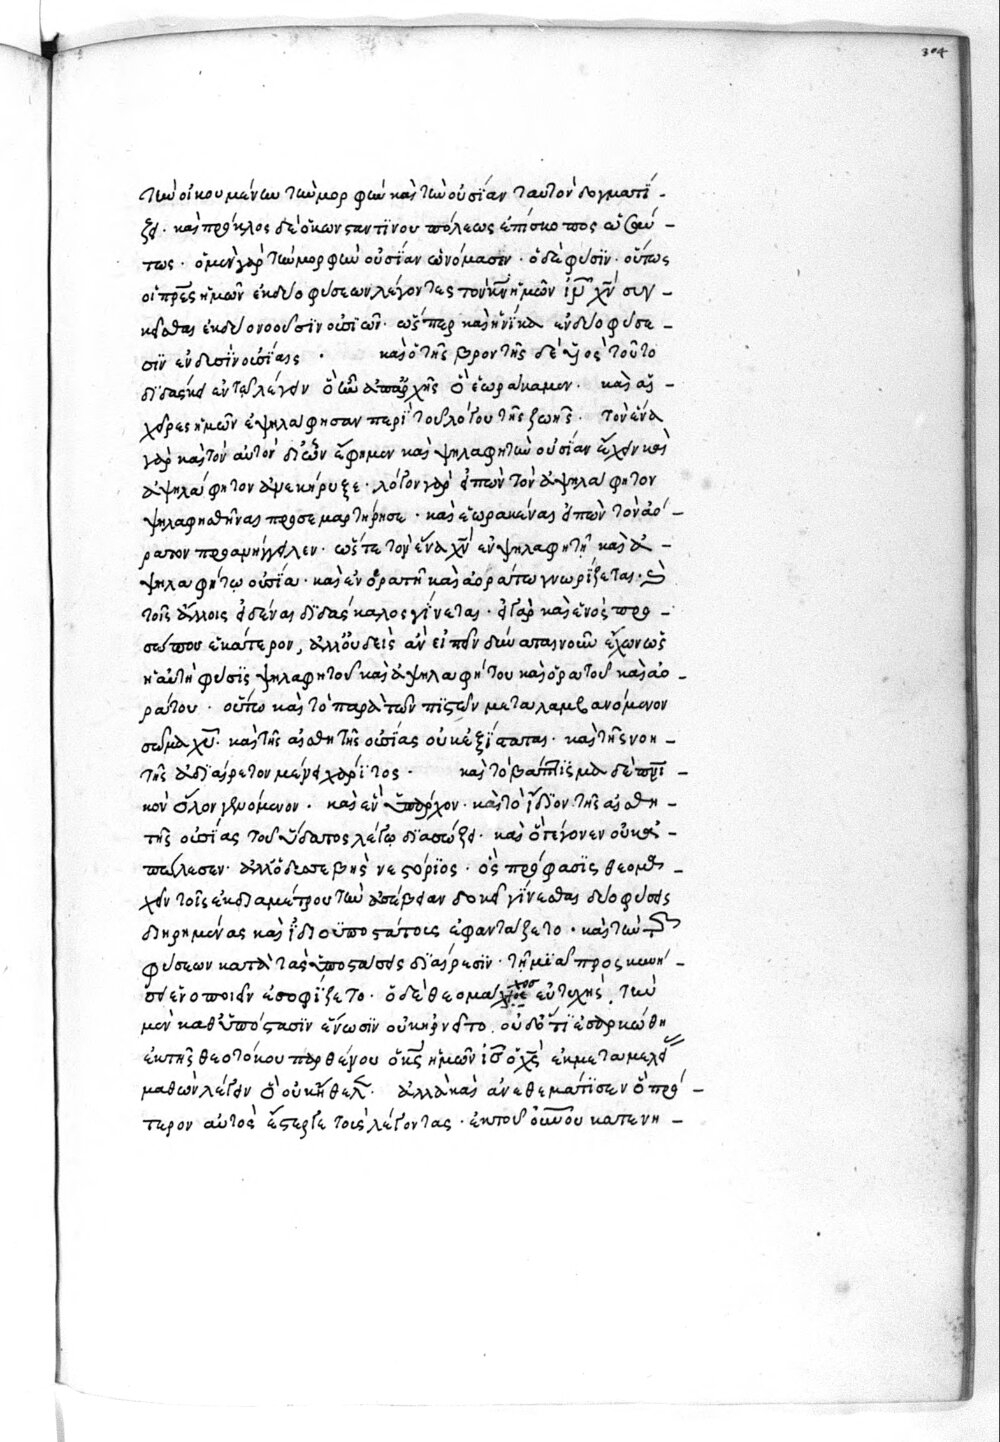 304
τῶν οἰκουμένων τὴν μορφὴν καὶ τὴν οὐσΐαν ταυτὸν δογματΐ -
ζει · καὶ πρόκλος δὲ ὁ κωνσταντΐνου πόλεως ἐπίσκοπος
τως · ὁ μὲν γὰρ τὴν μορφὴν οὐσΐαν ὠνόμασεν · ὁ δὲ φύσϊν · οὕτως
οἱ πρ̅ες ἡμῶν ἐκ δύο φύσεων λέγοντες τὸν κ̅ν ἡμῶν ι̅ν χ̅ν συγ -
κεῖσθαι ἐκ δύο νοοῦσϊν οὐσϊῶν · ὥσπερ καὶ ἡνΐκα ἐν δύο φύσε -
σϊν ἐν δυσὶν οὐσΐαις · καὶ ὁ τῆς βροντῆς δὲ υἱὸς τοῦτο
δϊδάσκει ἐν τῷ λέγειν ὃ ἦν ἀπαρχῆς ὃ ἑωράκαμεν · καὶ αἱ
χεῖρες ἡμῶν ἐψηλάφησαν περὶ τοῦ λόγου τῆς ζωῆς · τὸν ἕνα
γὰρ καὶ τὸν αὐτὸν δι' ὧν ἔφημεν καὶ ψηλαφητὴν οὐσΐαν ἔχειν καὶ
ἀψηλάφητον ἀνεκήρυξε · λόγον γὰρ εἰπὼν τὸν ἀψηλάφητον
ψηλαφηθῆναι προσεμαρτήρησε · καὶ ἑωρακέναι εἰπὼν τὸν ἀό -
ρατον παραμήγγειλεν · ὥστε τὸν ἕνα χ̅ν ἐν ψηλαφητῆ καὶ ἀ -
ψηλαφήτῳ οὐσία · καὶ ἐν ὁρατῆ καὶ ἀοράτω γνωρΐζεται ·
τοῖς ἄλλοις εἰδέναι δϊδάσκαλος γίνεται · εἰ γὰρ καὶ ἑνὸς προ -
σώπου ἑκάτερον, ἀλλ' οὐδεὶς ἂν εἰπεῖν δύναται νοῦν ἔχων ὡς
ἡ αὐτὴ φύσϊς ψηλαφητοῦ καὶ ἀψηλαφήτου καὶ ὁρατοῦ καὶ ἀο -
ράτου · οὕτω καὶ τὸ παρὰ τῶν πϊστῶν μεταλαμβανόμενον
σῶμα χ̅υ · καὶ τῆς αἰσθητῆς οὐσίας οὐκ ἐξΐσταται · καὶ τῆς νοη -
τῆς ἀδϊαίρετον μένει χάρϊτος · καὶ τὸ βάπτϊσμα δὲ πν̅ι -
κὸν ὅλον γενόμενον · καὶ ἓν ὑπάρχον · καὶ τὸ ἴδϊον τῆς αἰσθη -
τῆς οὐσίας τοῦ ὕδατος λέγω δϊασώζει · καὶ ὃ γέγονεν οὐκ ἀ -
πώλεσεν · ἀλλ' ὁ δυσσεβὴς νεστόρϊος · ὡς πρόφασϊς θεομα -
χεῖν τοῖς ἐκ διαμέτρου τὴν ἀσέβειαν δοκεῖ γΐνεσθαι δύο φύσεις
διηρημένας καὶ ἰδιοϋποστάτοις ἐφαντάζετο · καὶ τὴν
φύσεων κατὰ τὰς ὑποστάσεις δϊαίρεσϊν · τῇ μϊᾷ προσκυνή -
σει ἑνοποιεῖν ἐσοφΐζετο · ὁ δὲ θεομάχος εὐτυχής, τὴν
μὲν καθ' ὑπόστασϊν ἕνωσϊν οὐκ ἠρνεῖτο. οὐδ' ὅτϊ ἐσαρκώθη
ἐκ τῆς θεοτόκου παρθένου ὁ κ̅ς ἡμῶν ι̅ς ὁ χ̅ς ἐκ μεταμελεί
μαθὼν λέγειν ὃ οὐκ ἤθελε · ἀλλὰ καὶ ἀνεθεμάτϊσεν ὃ πρό -
τερον αὐτὸς ἔστεργε τοῖς λέγοντας · ἐκ τοῦ ο̅υ̅ν̅ου κατενη -